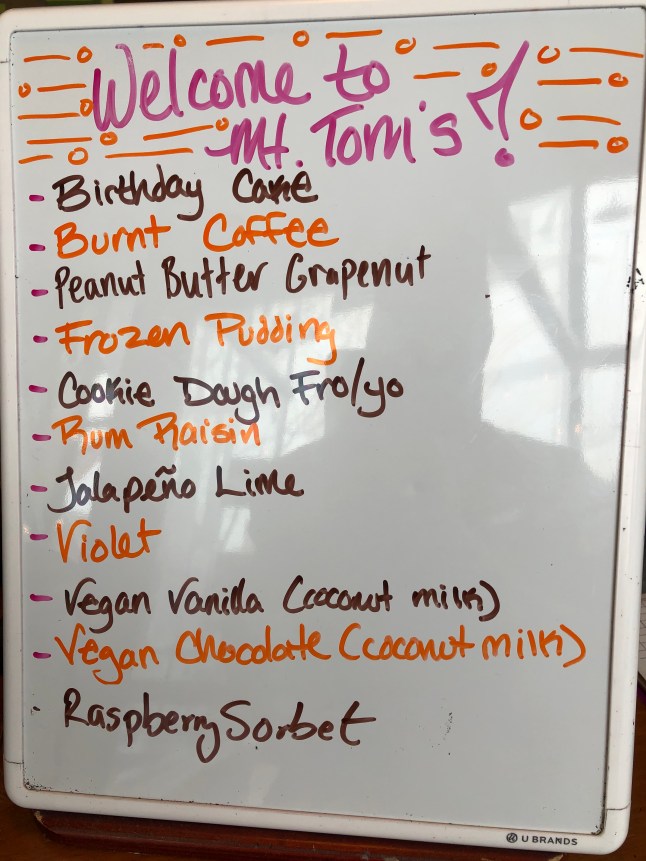 Welcome to
Mt. Tom's!
- Birthday Cake
- Burnt Coffee
- Peanut Butter Grapenut
- Frozen Pudding
- Cookie Dough Fro/yo
- Rum Raisin
- Jalapeño Lime
- Violet
- Vegan Vanilla (coconut milk)
- Vegan Chocolate (coconut milk)
- Raspberry Sorbet
U BRANDS